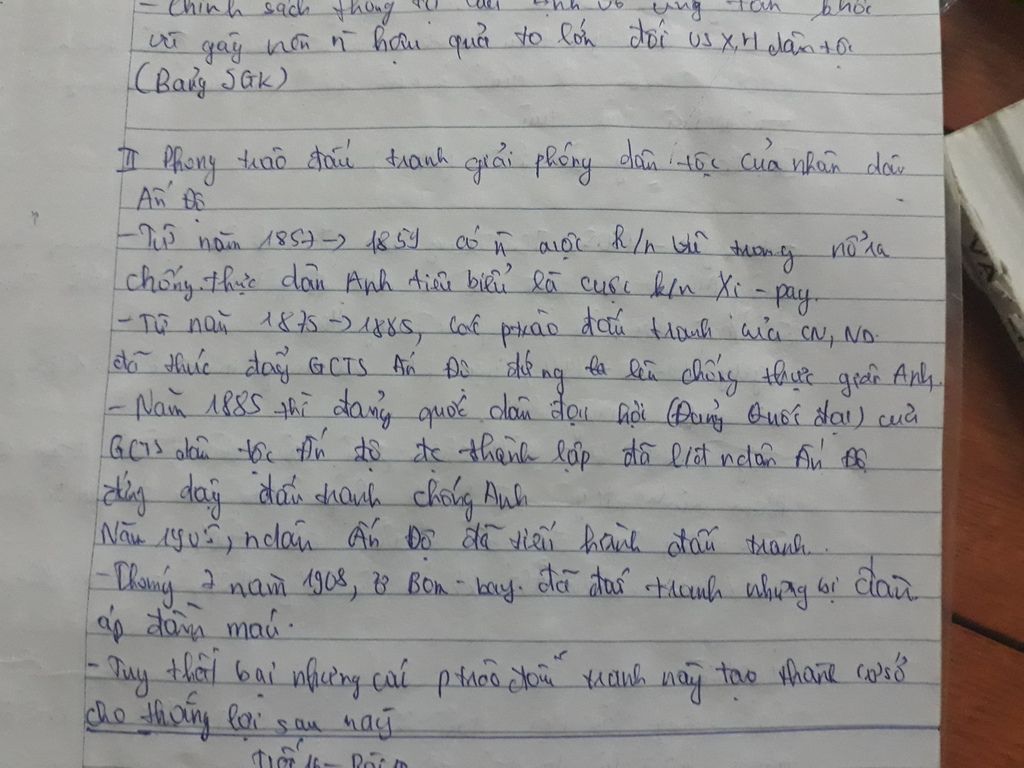 - Chính sách thống trị của Anh vô cùng tàn khốc
và gây nên n̄ hậu quả to lớn đối vs X,H dân tộc
(Bảng SGK)
II Phong trào đấu tranh giải phóng dân tộc của nhân dân
Ấn Độ
- Từ năm 1857 → 1859 có n̄ cuộc k/n vũ trang nổ ra
chống thực dân Anh tiêu biểu là cuộc k/n Xi - pay.
- Từ năm 1875 → 1885, các ptrào đấu tranh của CN, ND
đã thúc đẩy GCTS Ấn Độ đứng lên chống thực dân Anh.
- Năm 1885 thì đảng quốc dân đại hội (Đảng Quốc đại) của
GCTS dân tộc Ấn độ đc thành lập đã ndân Ấn Độ
đứng dậy đấu tranh chống Anh
Năm 1905, ndân Ấn Độ đã tiến hành đấu tranh.
- Tháng 7 năm 1908, ở Bom - bay. đã đấu tranh nhưng bị đàn
áp đẫm máu.
- Tuy thất bại nhưng các ptrào đấu tranh này tạo thành cơ sở
cho thắng lợi sau này